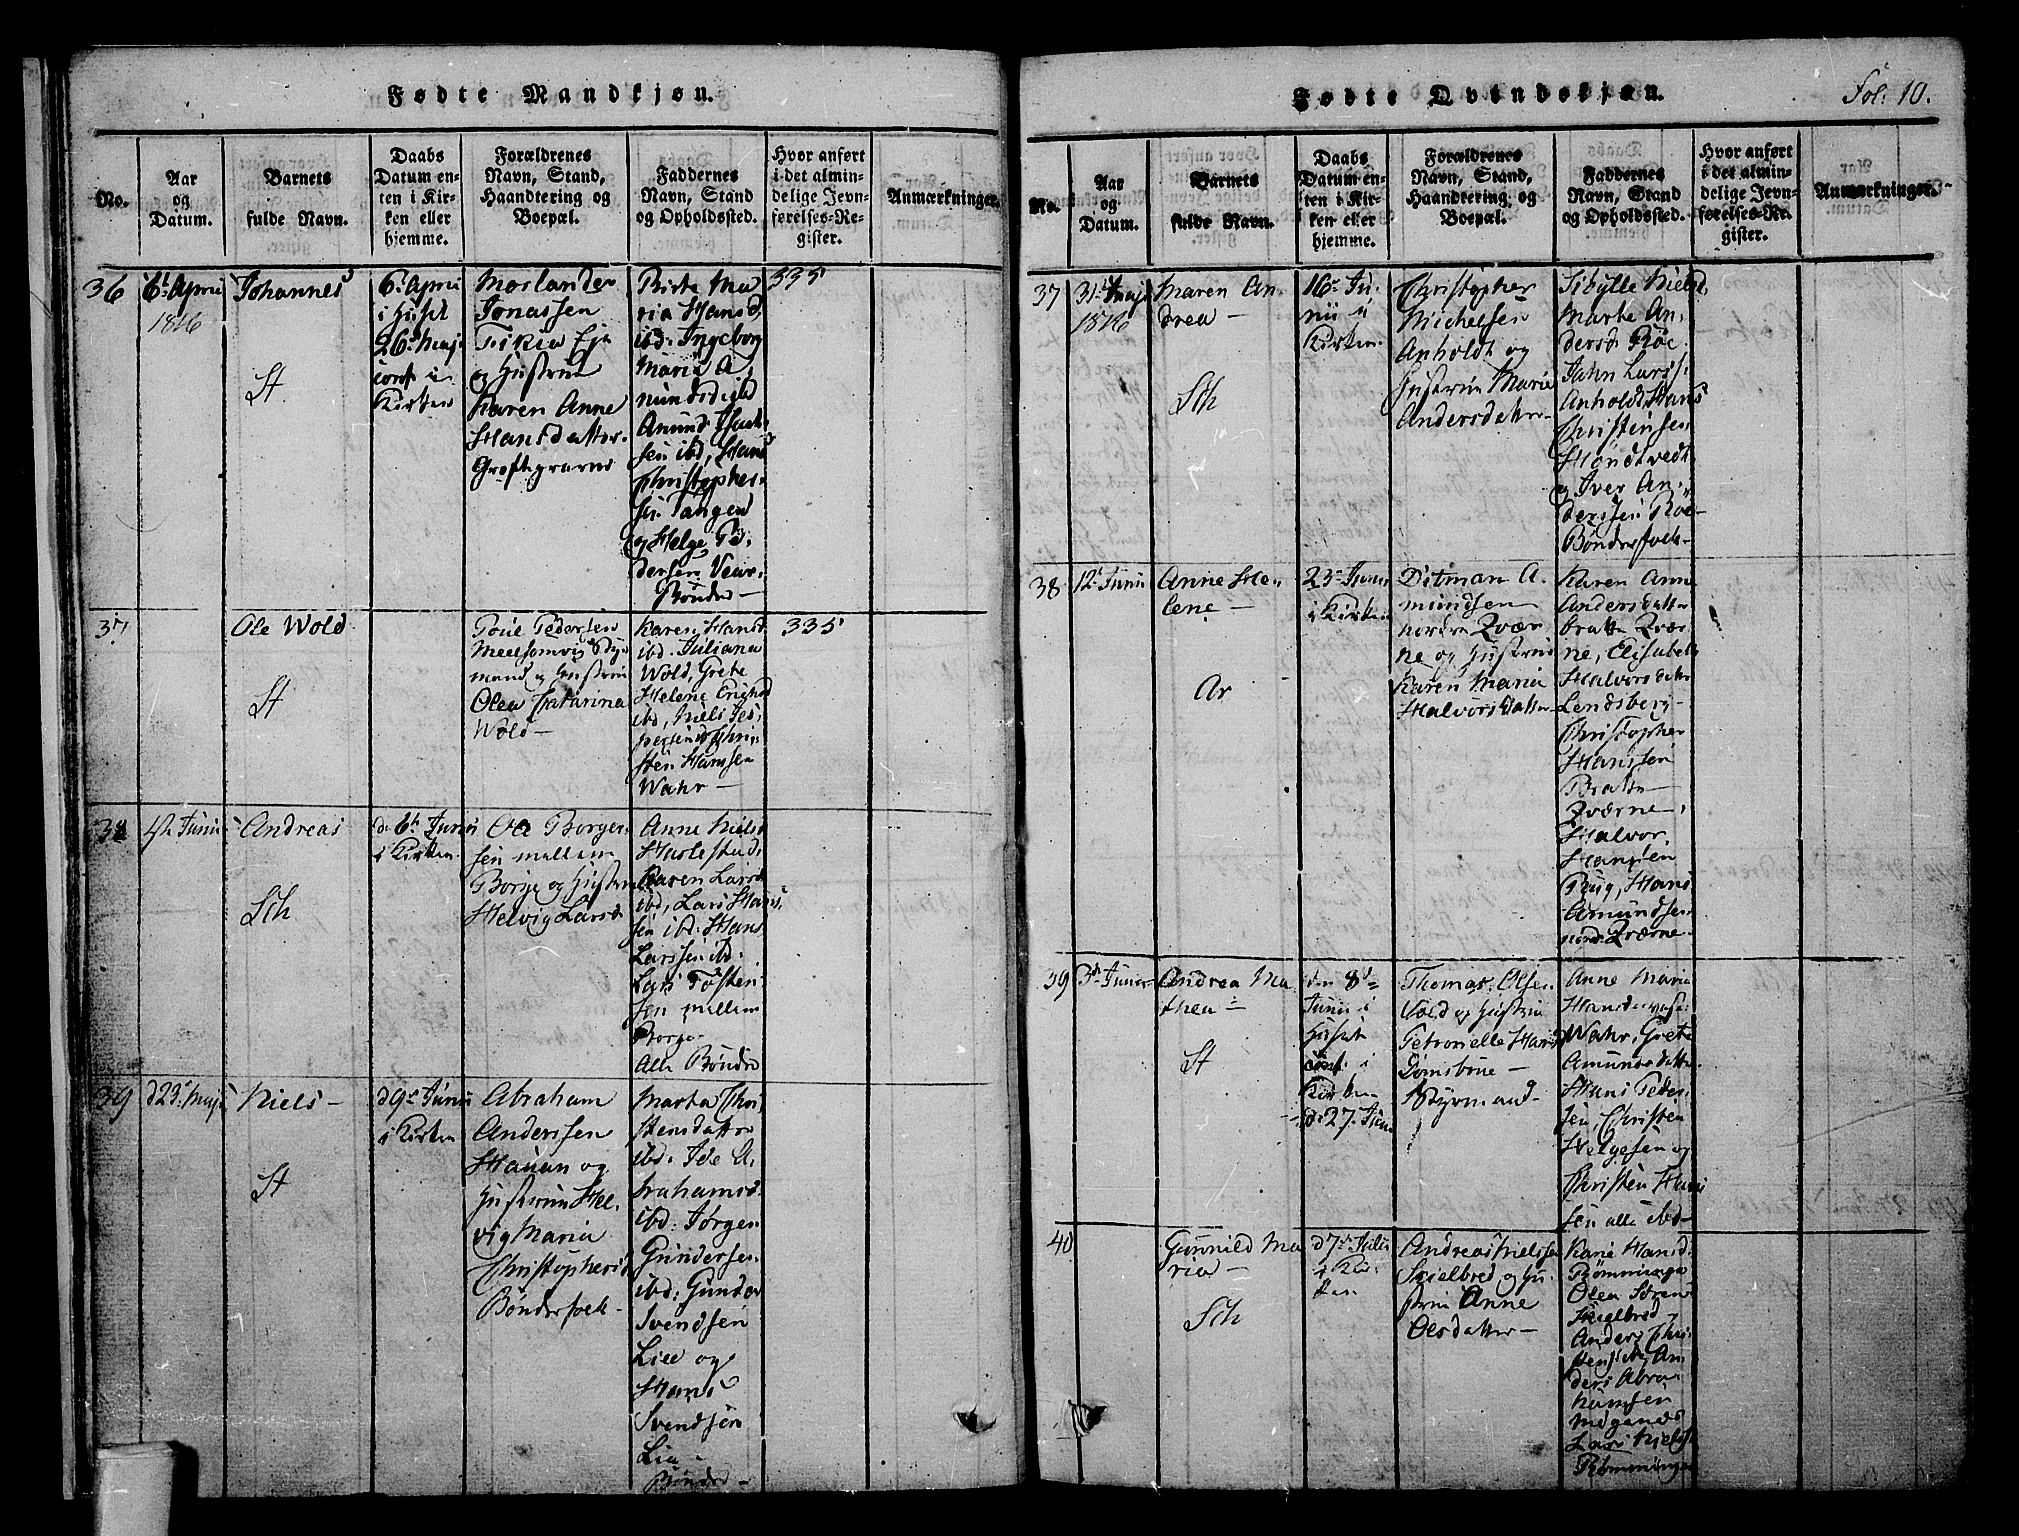 Fødte Mandkjøn.
No.
Aar
og
Datum.
Barnets
fulde Navn.
Daabs
Datum en-
ten i Kir-
ken eller
hjemme.
Forældrenes
Navn, Stand,
Haandtering og
Boepæl.
Faddernes
Navn, Stand
og Opholdssted.
Hvor anført
i det almin-
delige Jevn-
førelses-Re-
gister.
Anmærkninger.
36
1816
Johannes
St
i Huset
i
Kirken
Jonassen
og Hustrue
Karen Anne
Hansdatter
Birte Ma
ria Hansd
ibd: Ingeborg
Maria A
Amund
sen ibd, Hans
Christopher
sen Tangen
og Helge Pe
dersen
Bønder -
335
37
Ole Wold
St
Pedersen
mand og Hustrue
Olea Catarina
Wold -
Karen Hansd
ibd: Juliana
Wold, Grete
Helene
ibd, Niels Jes
sten Hansen
Wahr -
335
38
4de Junii
Andreas
Sch
d. 6te Junii
i Kirken
Ole Borger
sen mellem
Borge og Hustrue
Helvig Larsd
Anne Nielsd
Karen Larsd
ibd, Lars Hans
sen ibd: Hans
Larssen ibd:
Lars
sen mellem
Borge
Alle Bønder
39
d 23 Maji
Niels -
St
d 9de Junii
i Kirken
Abraham
Anderssen
og
Hustrue Hel
vig Maria
Christophersd
Bønderfolk -
Marta Chri
stensdatter
ibd: Ide A
brahamsd
ibd: Jørgen
Gundersen
ibd: Gunder
Svendsen
Lie og
Hans
Svendsen
Lie
Bønder -
Fødte Qvindekjøn.
Fol: 10.
No.
Aar
og
Datum.
Barnets
fulde Navn.
Daabs
Datum en-
ten i Kir-
ken eller
hjemme.
Forældrenes
Navn, Stand,
Haandtering og
Boepæl.
Faddernes
Navn, Stand
og Opholdssted.
Hvor anført
i det almin-
delige Jevn-
førelses-Re-
gister.
Anmærkninger.
37
31 Maji
1816
Maren An
drea -
Sch
16 Ju
nii i
Kirken
Christopher
Michelsen
Anholdt og
Hustrue Marie
Andersdatter -
Sibylle Nielsd
Marte An
dersd Røe
Jahn Larss
Anholdt Hans
Christensen
Høndtvedt
og Iver An
derssen Røe
Bønderfolk -
38
12 Junii
Anne He
lene -
Ar
23 Junii
i Kirken
Ditman A
mundsen
nordre Qvær
ne og Hustrue
Karen Maria
Halvorsdatter
Karen Anne
Andersdatter
bratte Qvær
ne, Elisabet
Halvorsdatter
Lendsberg
Christopher
Hanssen
Bratte
Qværne,
Halvor
Hanssen
Bug, Hans
Amundsen
nord: Qværne -
39
3de Junii
Andrea Ma
thea -
St
den 8de
Junii i
Huset
i
Kirken
d. 27 Juni
Thomas Olsen
og Hustrue
Petronelle Hansd
Styrmand -
Anne Maria
Wahr, Grete
Amundsdatter
Hans Peder
sen, Christen
Helgesen og
Christen Hans
sen alle ibd -
40
Gunnild Ma
ria -
Sch
d 7de Julii
i Kir
ken
Andreas Nielsen
Skielbred og Hu
strue Anne
Olsdatter -
Karie Hansd
Rømminge
Olea Sørens
Skielbred
Anders Chri
stens ibd, An
ders Abra
hamsen
Lars Niels
Rømmingen